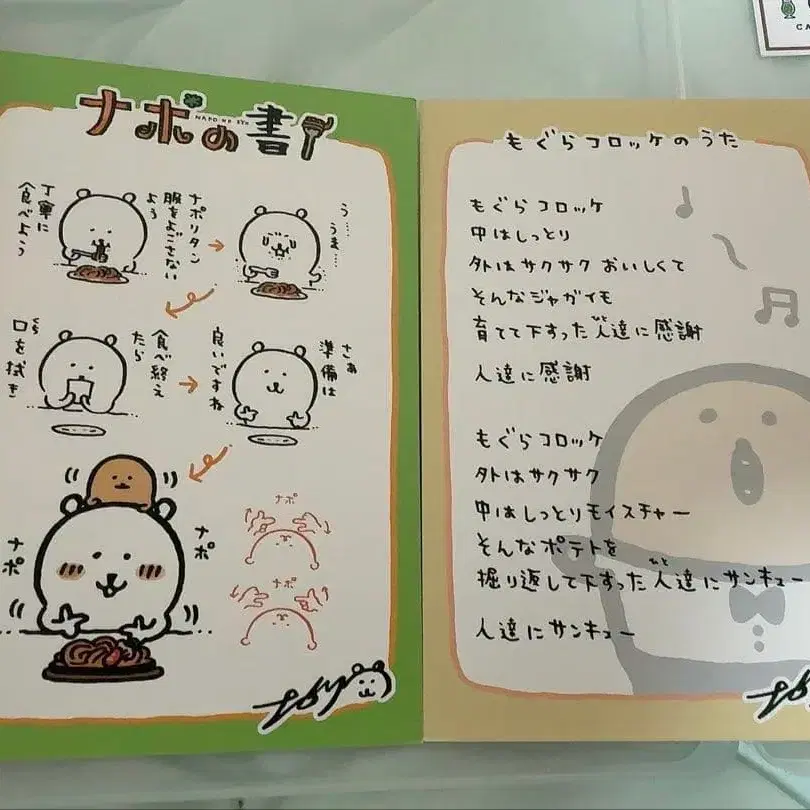 ナポの書
NAPO NO SYO
ナポリタン
服をよごさない
よう
丁寧に
食べよう
う…
うま…
食べ終え
たら
口を拭き
さぁ
準備は
良いですね
ナポ
ナポ
ナポ
ナポ
もぐらコロッケのうた
もぐらコロッケ
中はしっとり
外はサクサク おいしくて
そんなジャガイモ
育てて下すった人達に感謝
人達に感謝
もぐらコロッケ
外はサクサク
中はしっとりモイスチャー
そんなポテトを
掘り返して下すった人達にサンキュー
人達にサンキュー